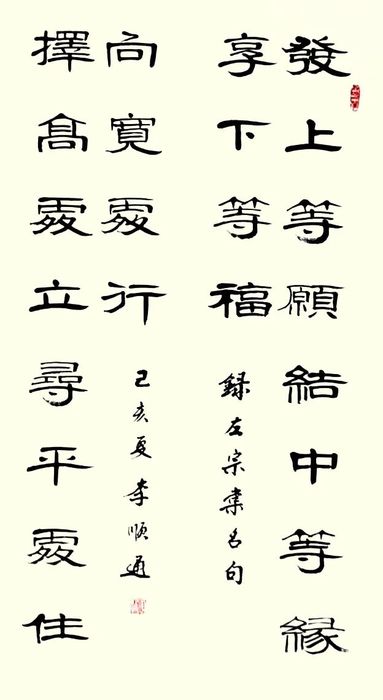 發上等願結中等緣
享下等福
録左宗棠名句
擇髙處立尋平處住
向寬處行
己亥夏李順通